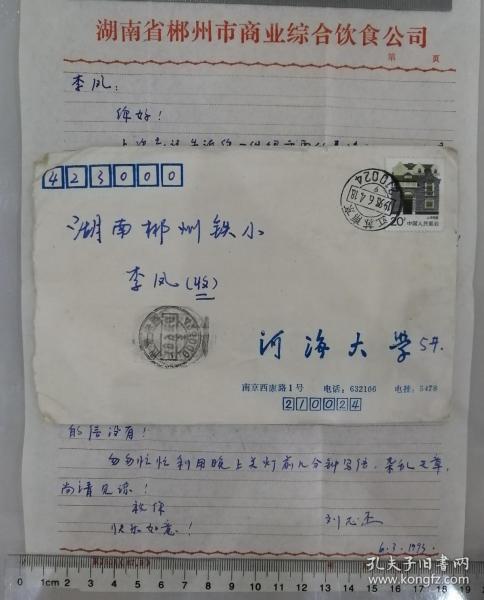 湖南省郴州市商业综合饮食公司
第 页
李凤：
你好！
423000
湖南郴州铁小
李凤(收)
20分 中国人民邮政
江苏南京
210024
河海大学
南京西康路1号 电话：632106 电挂：5478
210024
的信没有！
匆匆忙忙利用晚上关灯前几分钟写信，杂乱之章，
尚请见谅！
祝你
快乐如意！
0 1cm 2 3 4 5 6 7 8 9 10 11 12 13 14 15 16 17 18 19
孔夫子旧书网